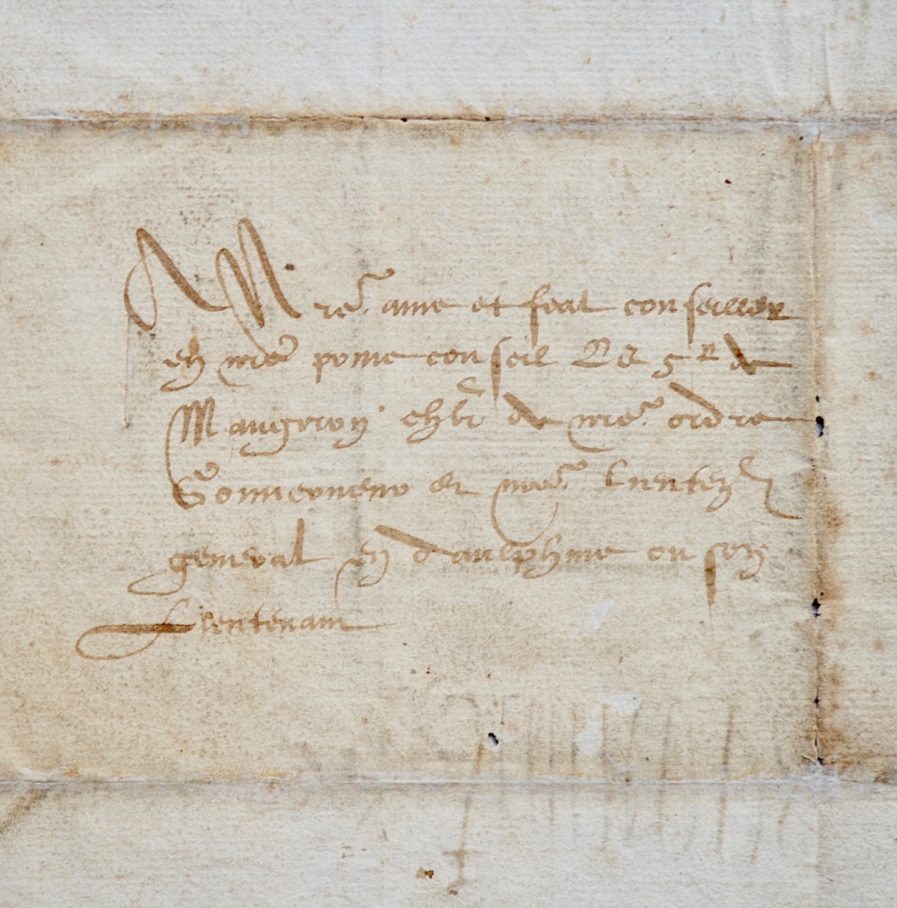 A Nre ame et feal conseiller
en nre pome conseil le sr de
Maugeron chlr de nre ordre
Gouverneur et nre Lieuten
general en daulphine ou son
Lieutenant